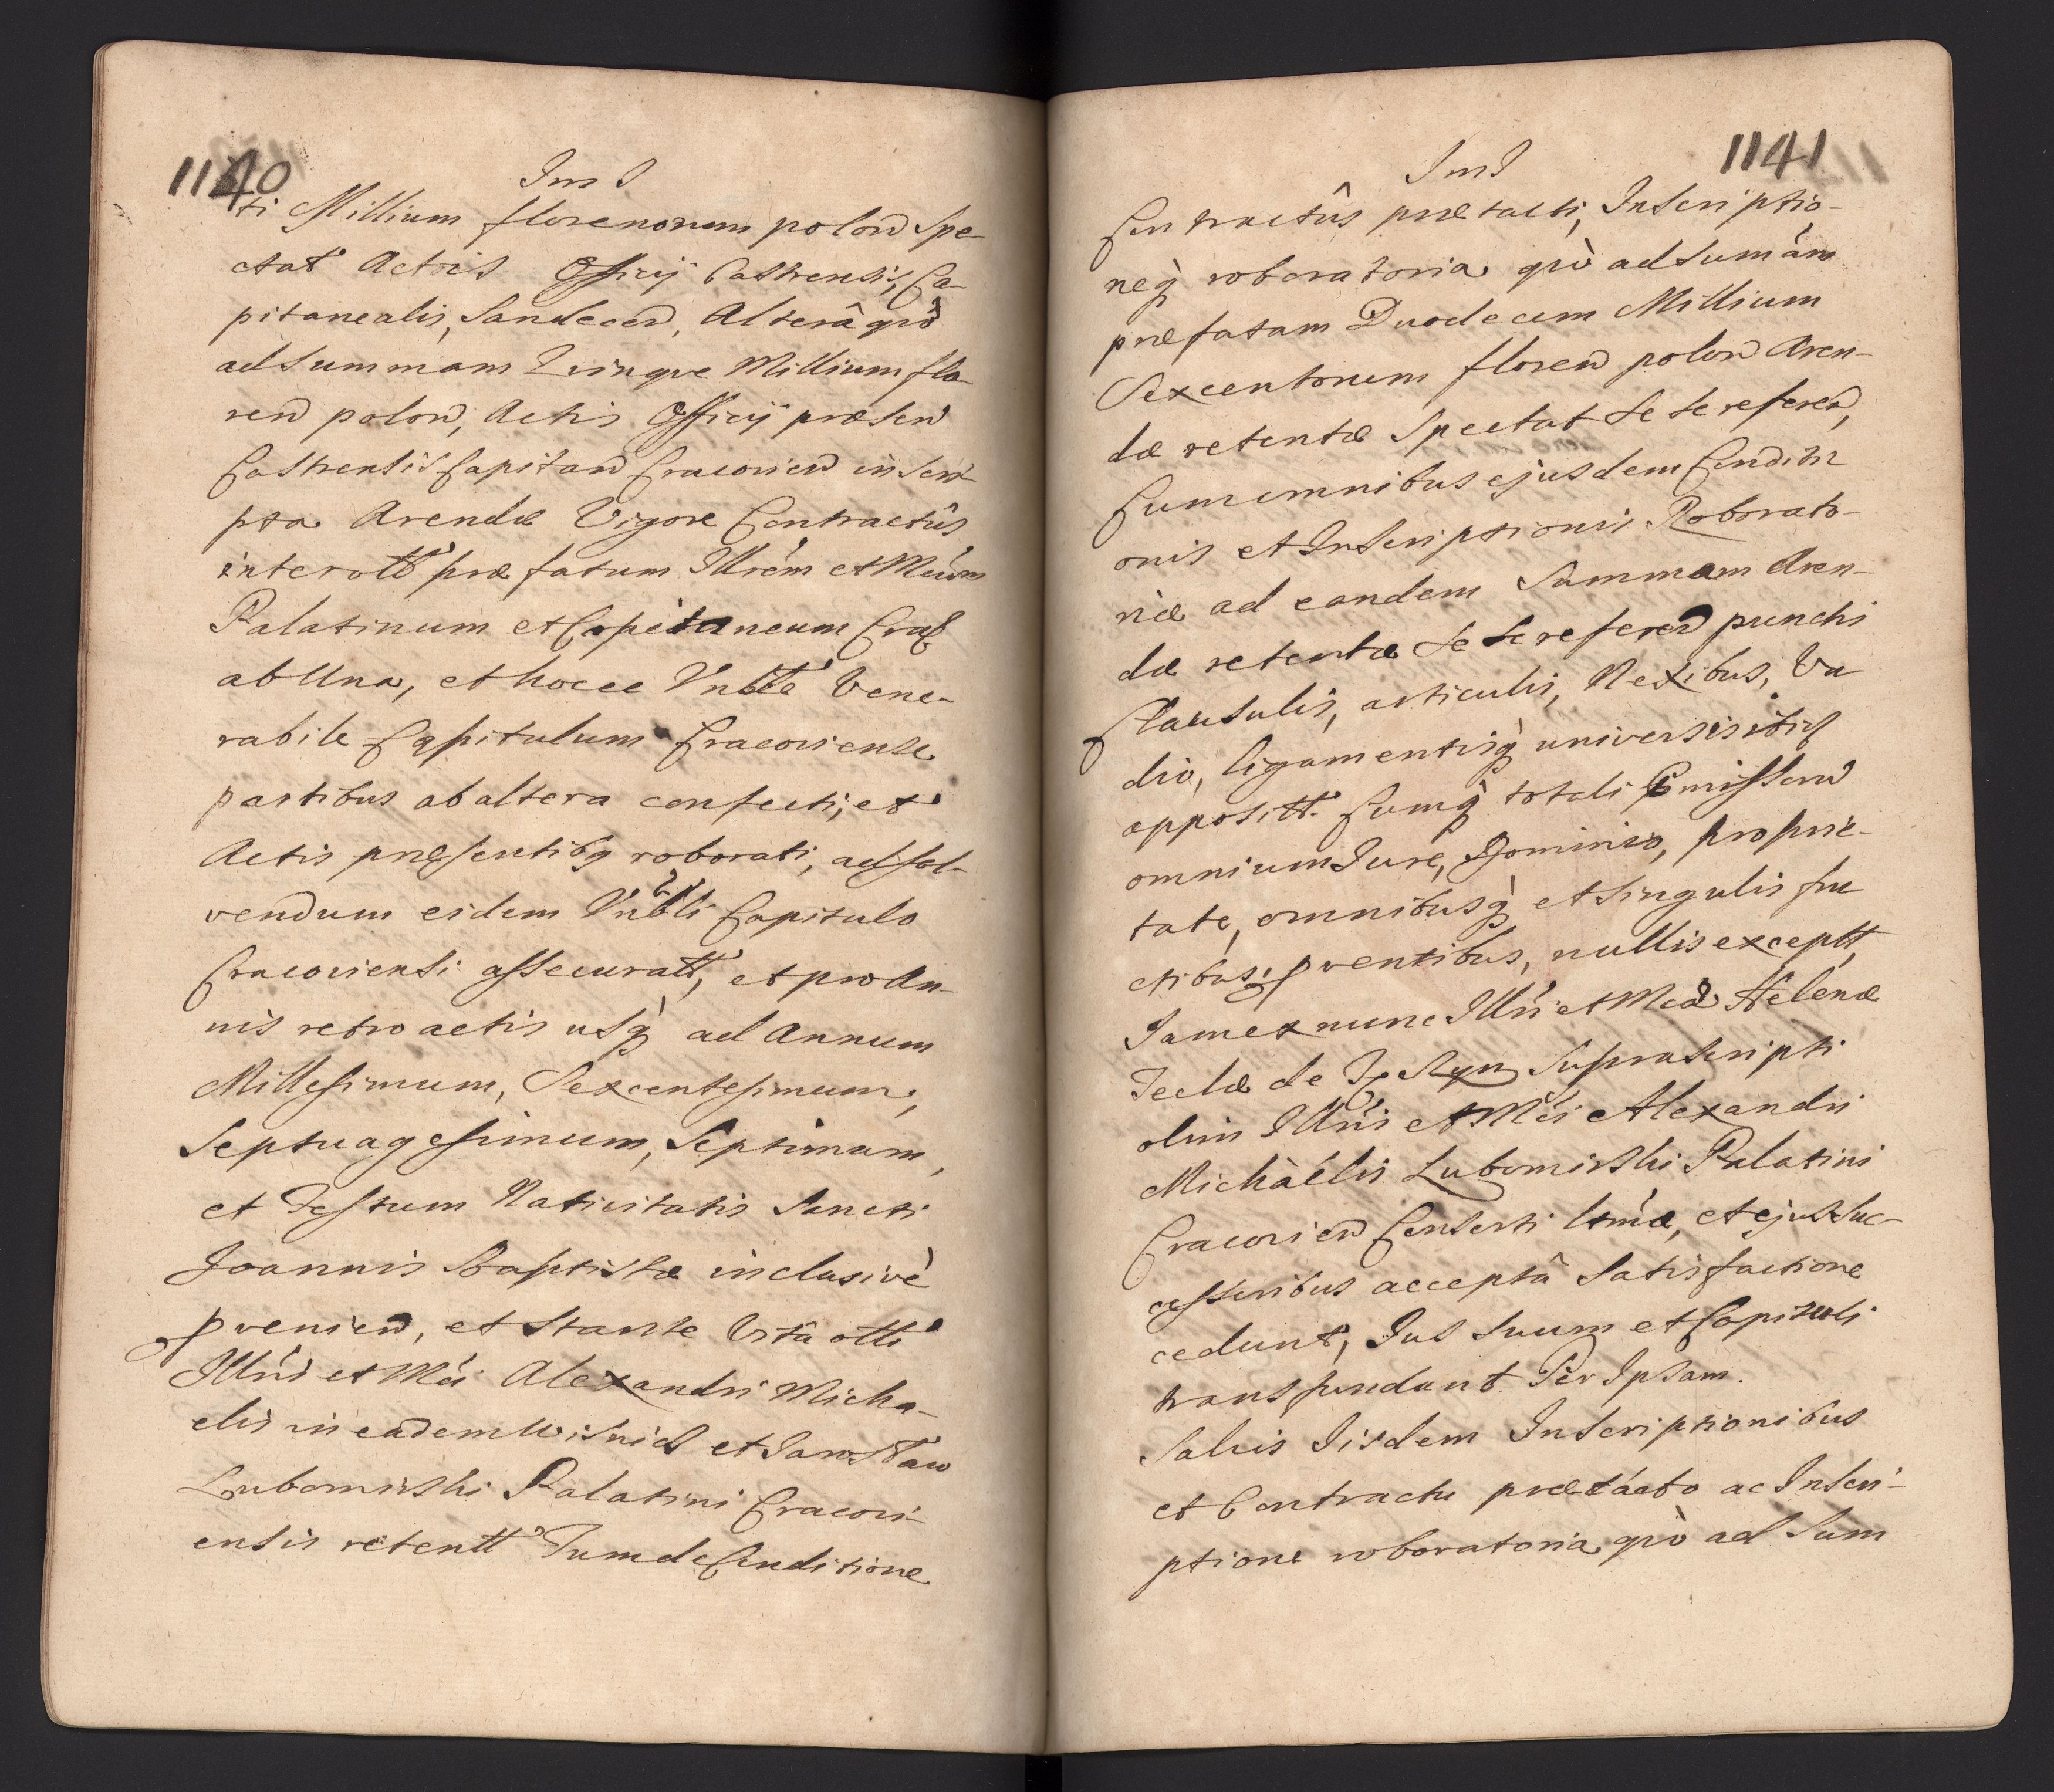 1140
Ims I
ti Millium florenorum polon spe-
ctat Actis Officij Castrensis, Ca-
pitanealis, Sandecen, Alterâ quò
ad summam Quinque Millium flo-
ren polon, Actis Officij præsen
Castrensis Capitan Cracovien inscri-
pta Arendæ Vigore Contractûs
inter ott præfatum Illrem et Mcum
Palatinum et Capitaneum Crac
ab Una, et hocce Vnble Vene-
rabile Capitulum Cracoviense
partibus ab altera confecti, et
Actis præsentibq roborati, ad sol-
vendum eidem Vnbli Capitulo
Cracoviensi assecuratt, et pro An-
nis retro actis usq ad Annum
Millesimum, Sexcentesimum,
Septuagesimum, Septimum,
et Festum Nativitatis Sancti
Joannis Baptistæ inclusivè
pvenien, et stante Vitâ otti
Illris et Mci Alexandri Micha-
elis in eadem Wisnicz et Jarosław
Lubomirski Palatini Cracovi-
ensis retentt Tum de Conditione
1141
Ims I
Contractûs prætacti, Inscriptio-
neq roboratoria quò ad sumam
præfatam Duodecem Millium
Sexcentorum floren polon Aren-
dæ retentæ Spectat se se referen,
Cum omnibus ejusdem Conditi
onis et Inscriptionis Roborato-
riæ ad eandem Summam Aren-
dæ retentæ se se referen punctis
Clausulis, articulis, Nexibus, Va
dio, ligamentisq universis ibid
apposit. Cumq totali omissen
omnium Jure, Dominio, proprie-
tate, omnibusq et singulis fru
ctibus, pventibus, nullis exceptt,
Jam ex nunc Illri et Mcæ Helenæ
Teclæ de Supra scripti
olim Illris et Mci Alexandri
Michaëlis Lubomirski Palatini
Cracovien Consorti ltmæ, et ejus Suc-
cessoribus acceptâ Satisfactione
cedunt, Jus Suum et Capituli
transfundunt Per Ipsam.
Salvis Iisdem Inscriptionibus
et Contractu prætacto ac Inscri-
ptione roboratoria quò ad Sum